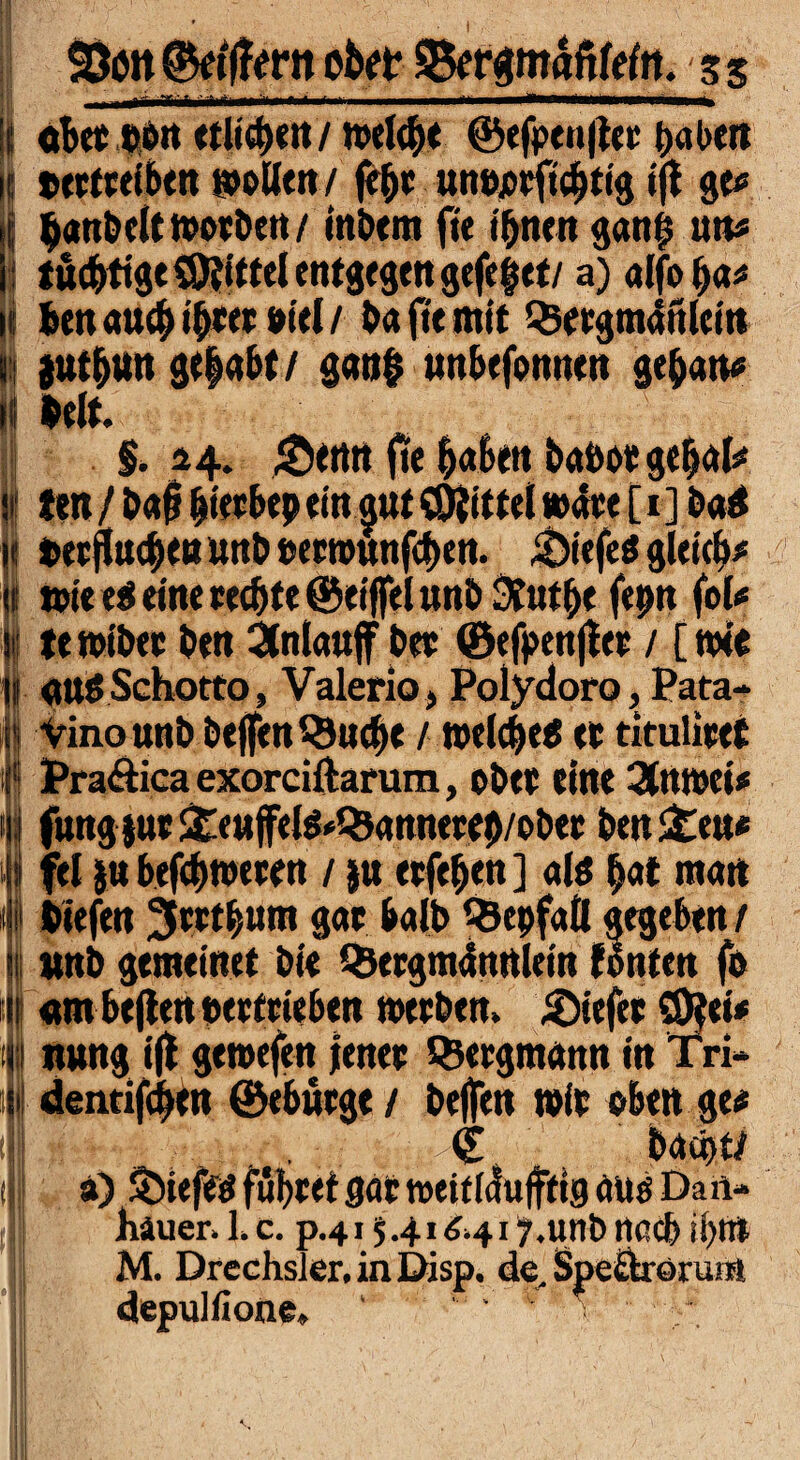 Von Geistern oder Bergmäñlein. 55
aber von etlichen / welche Gespenster haben
vertreiben wollen / sehr unvorsichtig ist ge⸗
handelt worden / indem sie ihnen gantz un⸗
tüchtige Mittel entgegen gesetzet / a) also ha⸗
ben auch ihrer viel / da sie mit Bergmäñlein
zuthun gehabt / gantz unbesonnen gehan⸗
delt.
§. 24. Denn sie haben davor gehal⸗
ten / daß hierbey ein gut Mittel wäre [1] das
verfluchen und verwünschen. Dieses gleich⸗
wie es eine rechte Geissel und Ruthe seyn sol⸗
te wider den Anlauff der Gespenster / [wie
aus Schotto, Valerio, Polydoro, Pata-
vino und dessen Buche / welches er tituliret
Practica exorcistarum, oder eine Anwei⸗
sung zur Teuffels⸗Bannerey/oder den Teu⸗
fel zu beschweren / zu ersehen] als hat man
diesen Irrthum gar bald Beyfall gegeben /
und gemeinet die Bergmännlein könten so
am besten vertrieben werden. Dieser Mei⸗
nung ist gewesen jener Bergmann in Tri-
dentischen Gebürge / dessen wir oben ge⸗
E dacht/
a) Dieses führet gar weitläufftig aus Dan-
häuer. l. c. p.415.416.417.und nach ihm
M. Drechsler, in Disp. de Spectrorum
depulsione.